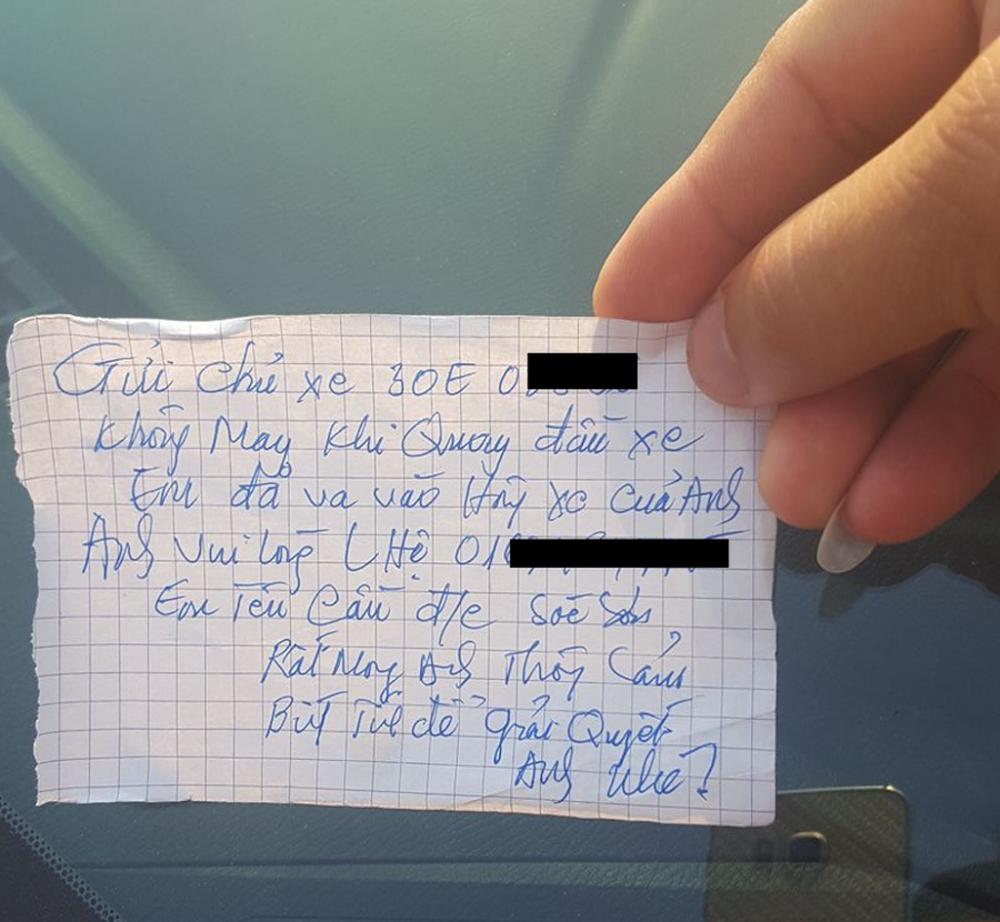 Gửi chủ xe 30E 0
Không May Khi Quay đầu xe
Em đã va vào xe của Anh
Anh Vui lòng LHệ 01
Em Tên Cầu đ/c Sóc Sơn
Rất Mong Anh Thông Cảm
để giải Quyết
Anh Nhé